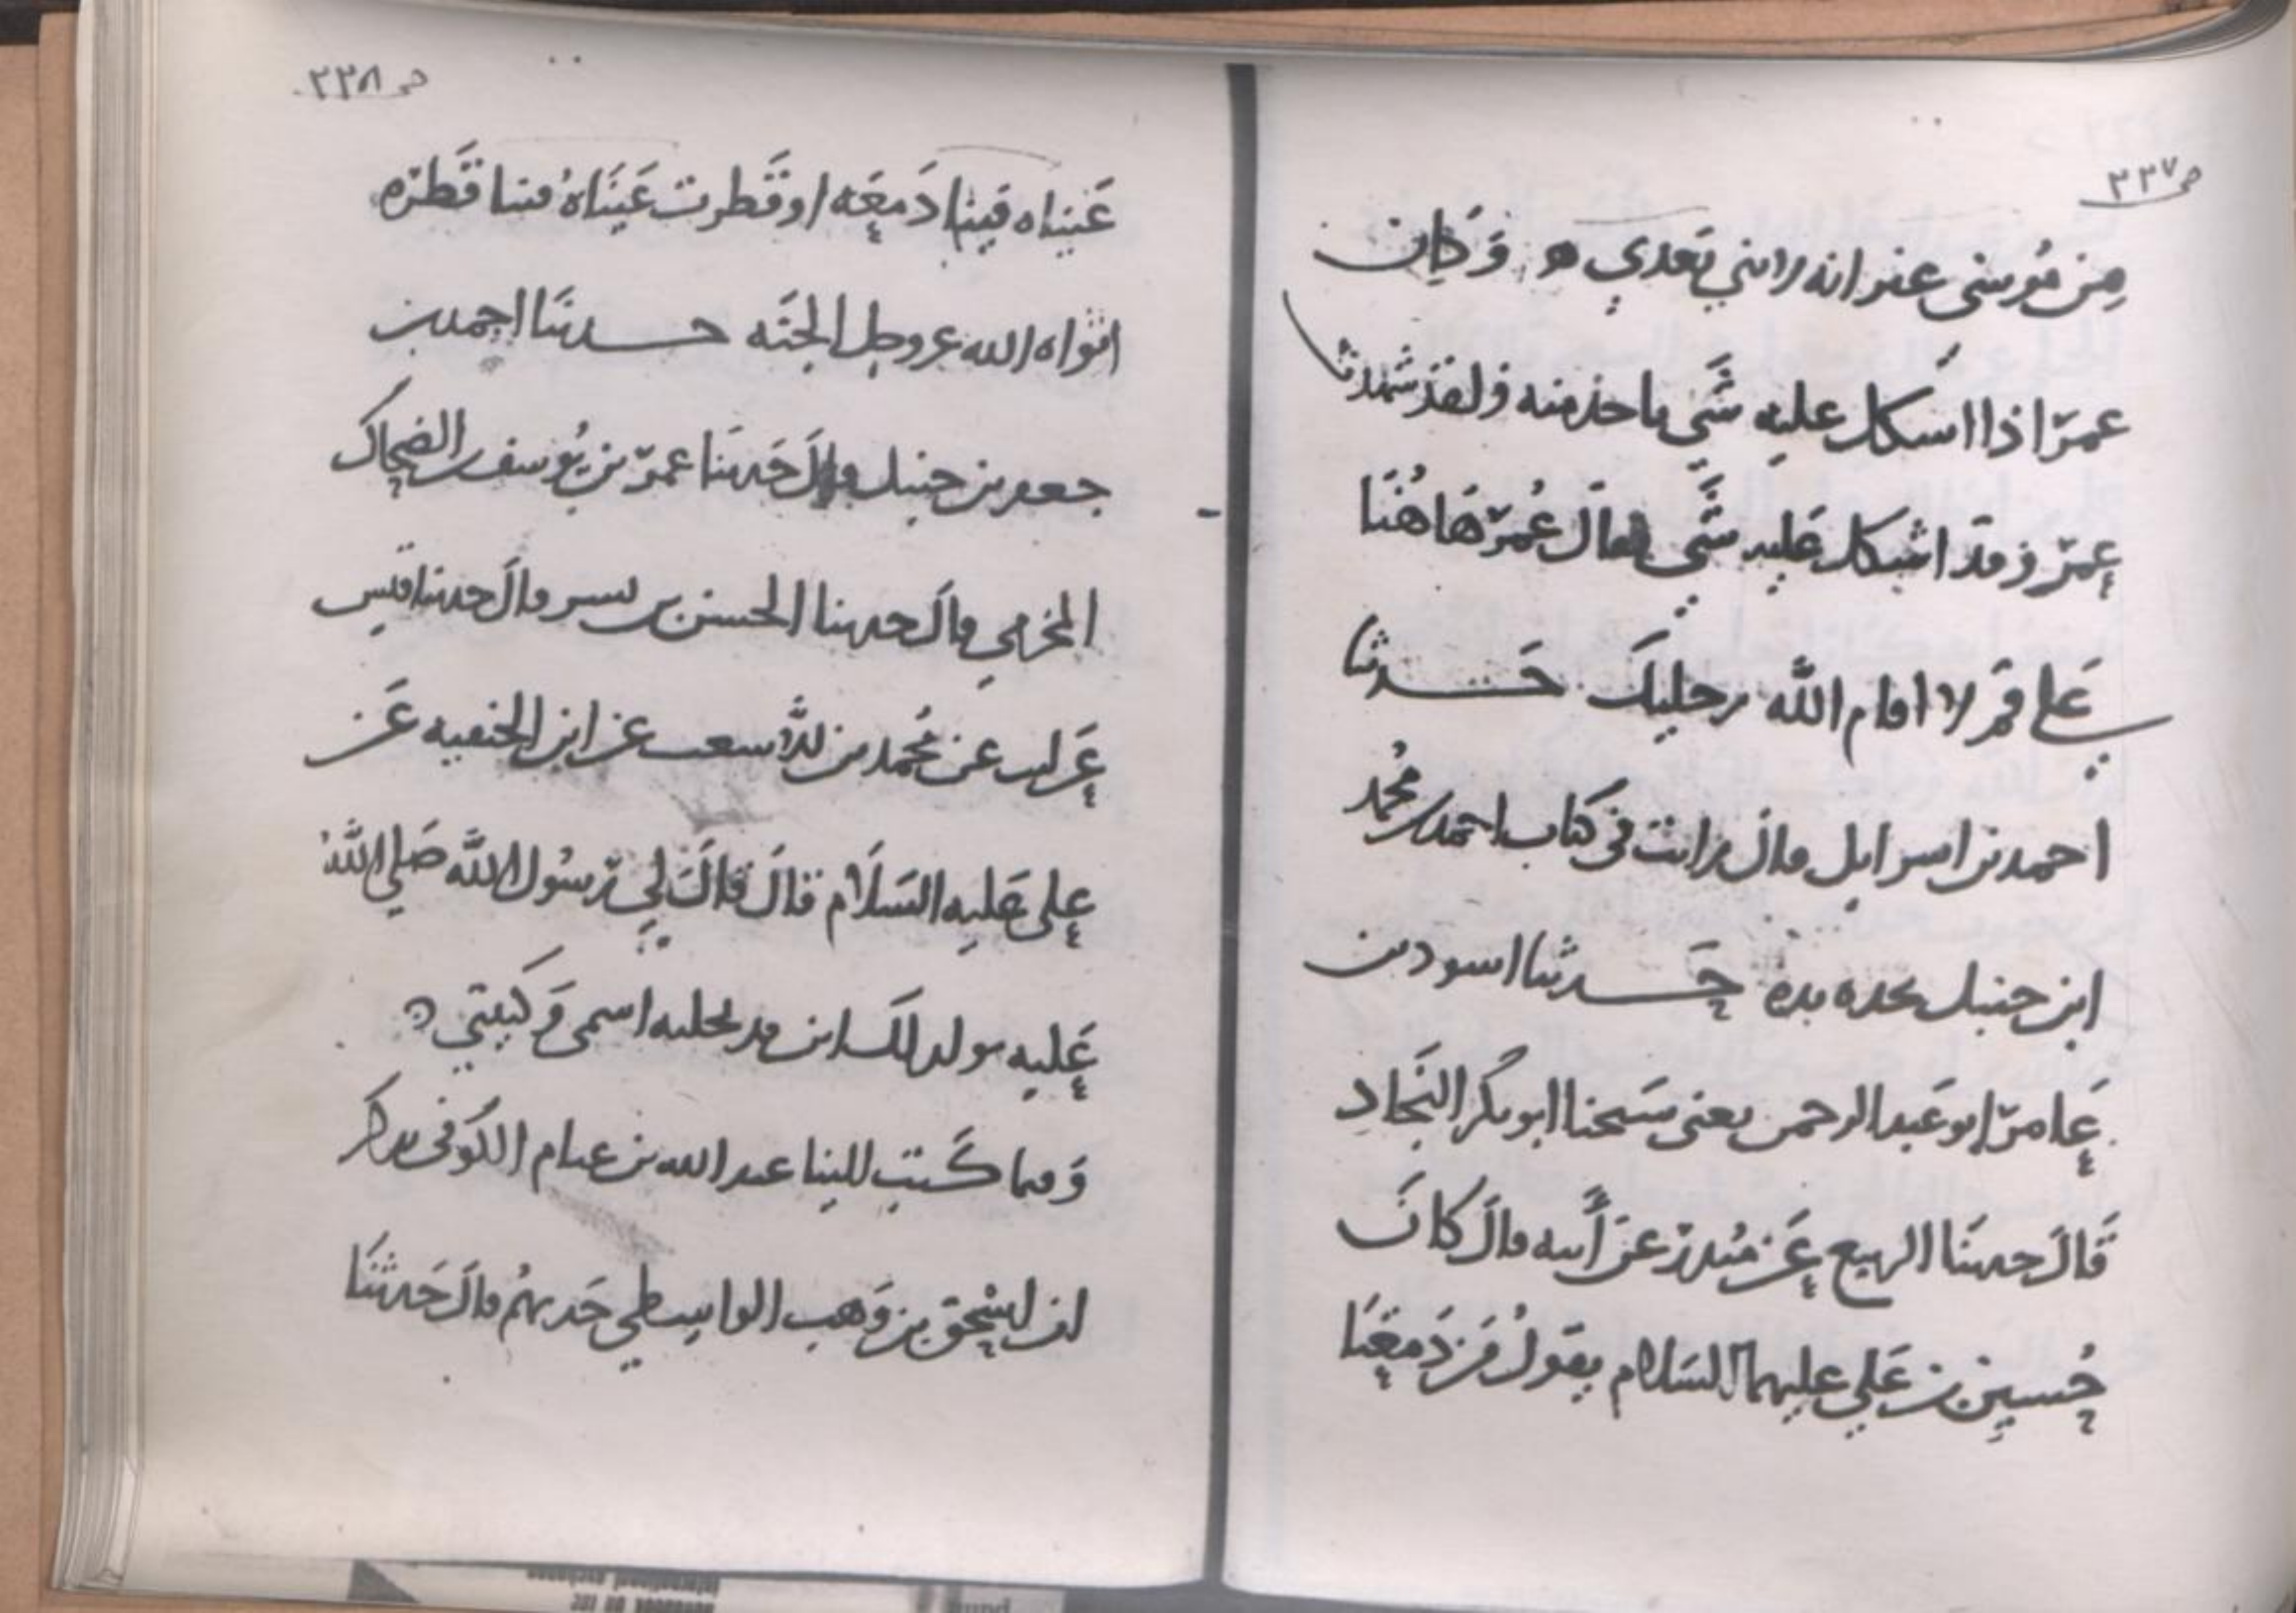 ص ٣٣٧
مِن مُوسى غير انه لا نبي بَعدي ه وَكان
عمرَ اذا اشكل عليه شَي ياخذ منه ولقد شهدنا
عمرَ وقد اشكل عَليه شَي فقالَ عُمرّ هَاهُنَا
عَلي قُم لا اقام الله رجليك حَــدثنا
احمد بن اسرايل قال رايت في كتاب احمد بن مُحمد
ابن حنبل بخطه يده حَــدثنا اسود بن
عَامرّ ابو عَبد الرحمن يعنى سَحنا ابو بكر النجَادِ
قَالَ حدثنَا الربيع عَن مُنذرّ عن أَبيه قالَ كانَ
حُسين بن عَلي عليهما السَلام يقولُ مَن دَمعَتَا
ص ٣٣٨
عَيناه فينا دَمعَه او قَطرت عَينَاهُ فينا قَطرَه
اثواه الله عز وجل الجنَه حــدثنَا احمد بن
جعفر بن حنبل قالَ حَدثنَا عمرّ بن يُوسف بن الضحاك
المخرمي قالَ حدثنا الحسن بن بشر قالَ حدثنا قيس
عَن ليث عن مُحمد بن الاشعث عن ابن الحنفيه عَن
عَلي عَليه السَلَام قالَ قالَ لي رّسُول الله صَلي اللهُ
عَليه يولد لك ابن قد نحلته اسمى وَكنيتي ه
وَمما كَتب الينا عبد الله بن غنام الكوفى يذكر
ان اسحٰق بن وَهب الواسطي حَدثهُم قالَ حَدثنَا